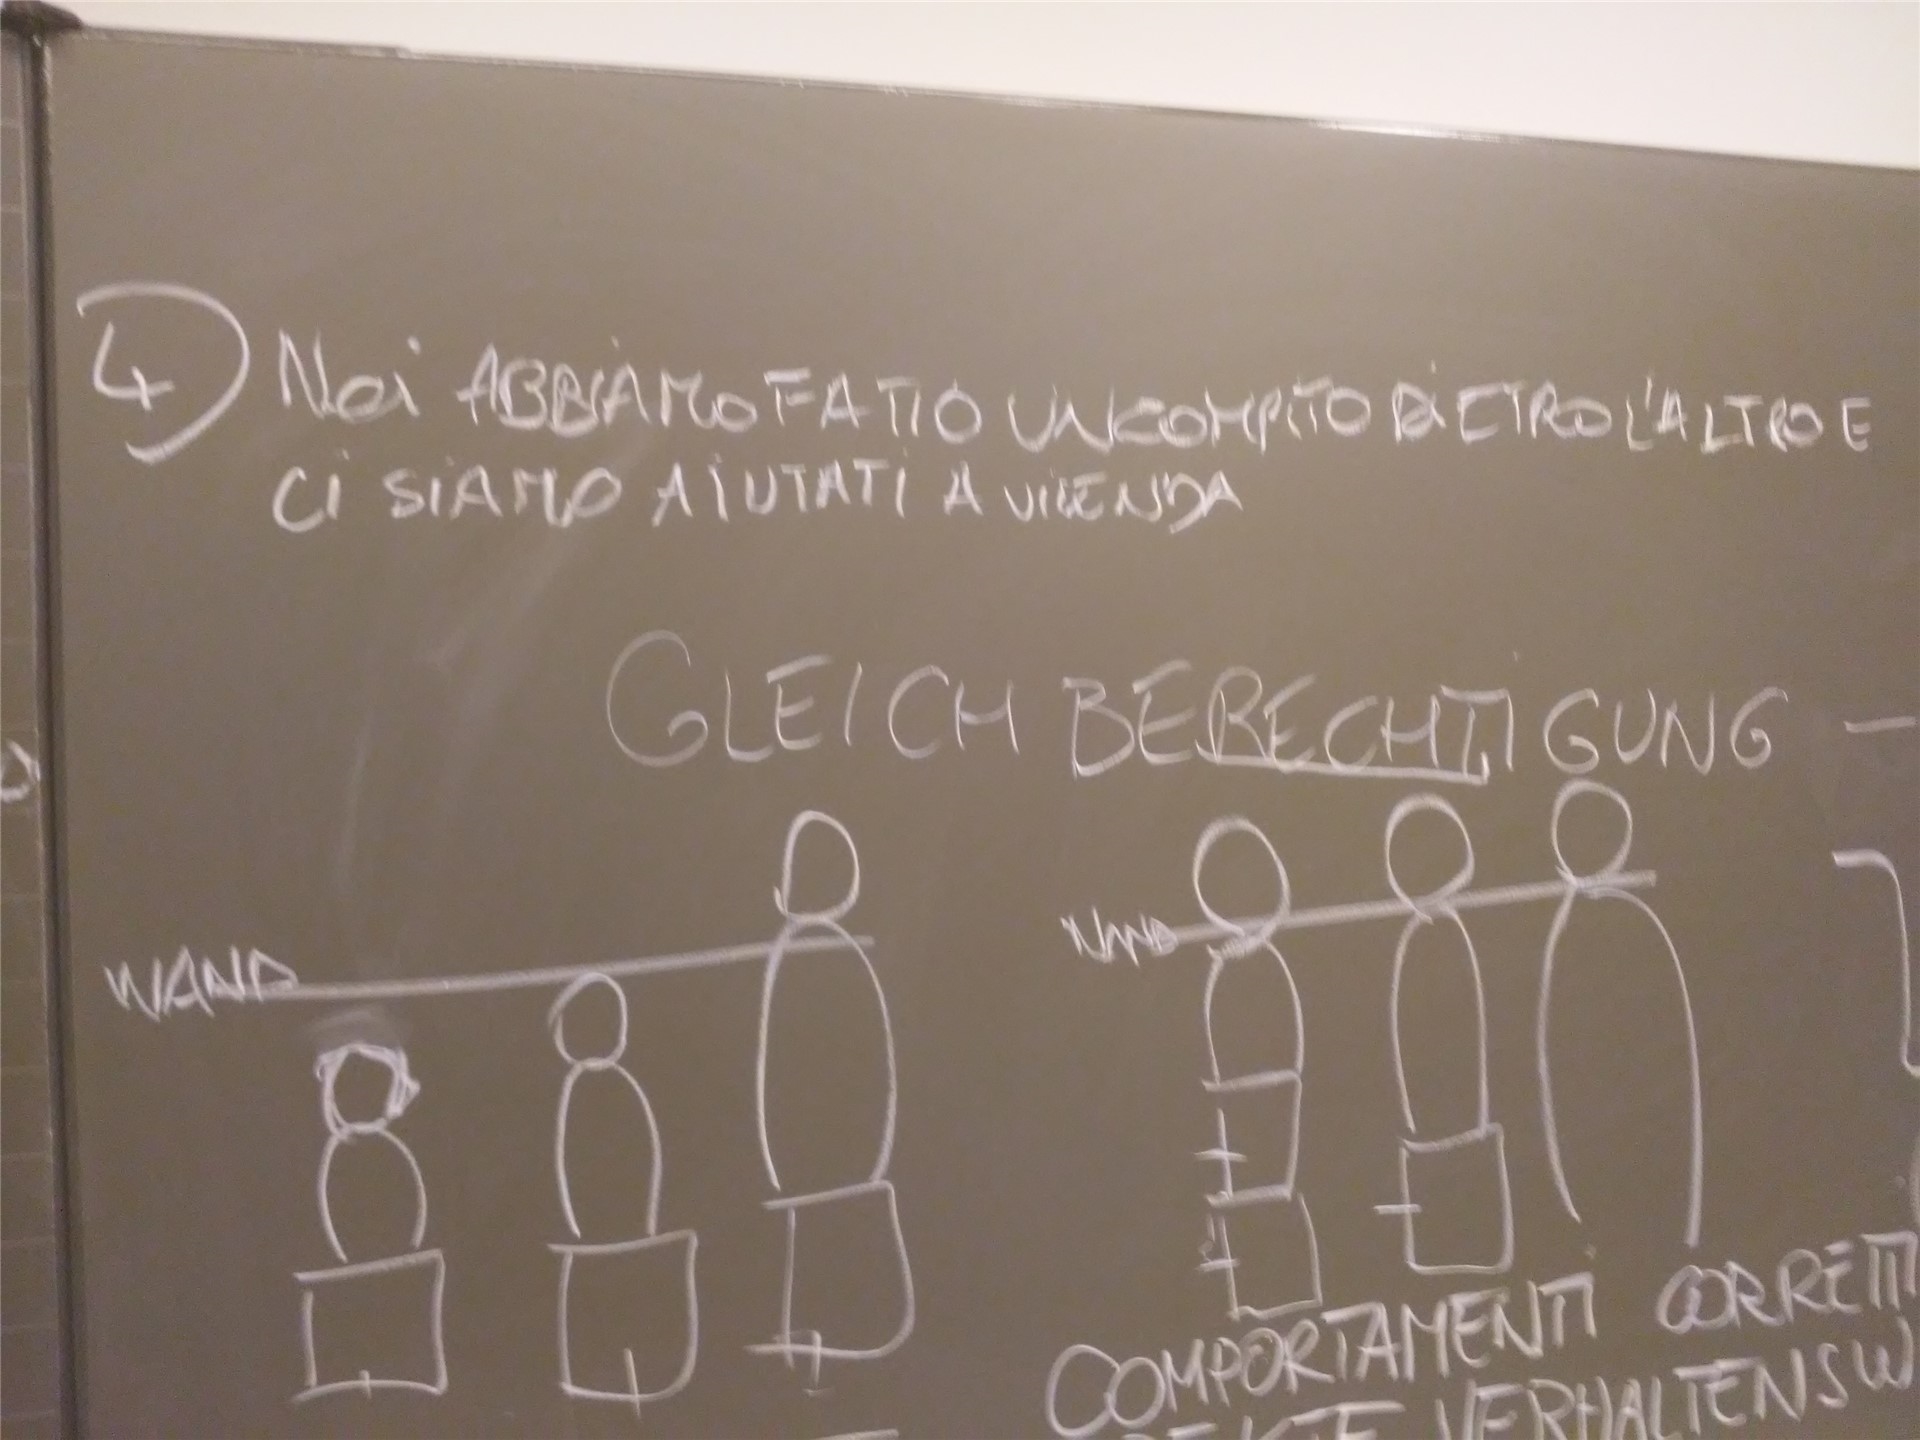 4) Noi ABBIAMO FATTO UN COMPITO DIETRO L'ALTRO E
CI SIAMO AIUTATI A VICENDA
GLEICH BERECHTIGUNG —
WAND
WAND
COMPORTAMENTI CORRETTI
VERHALTENSW